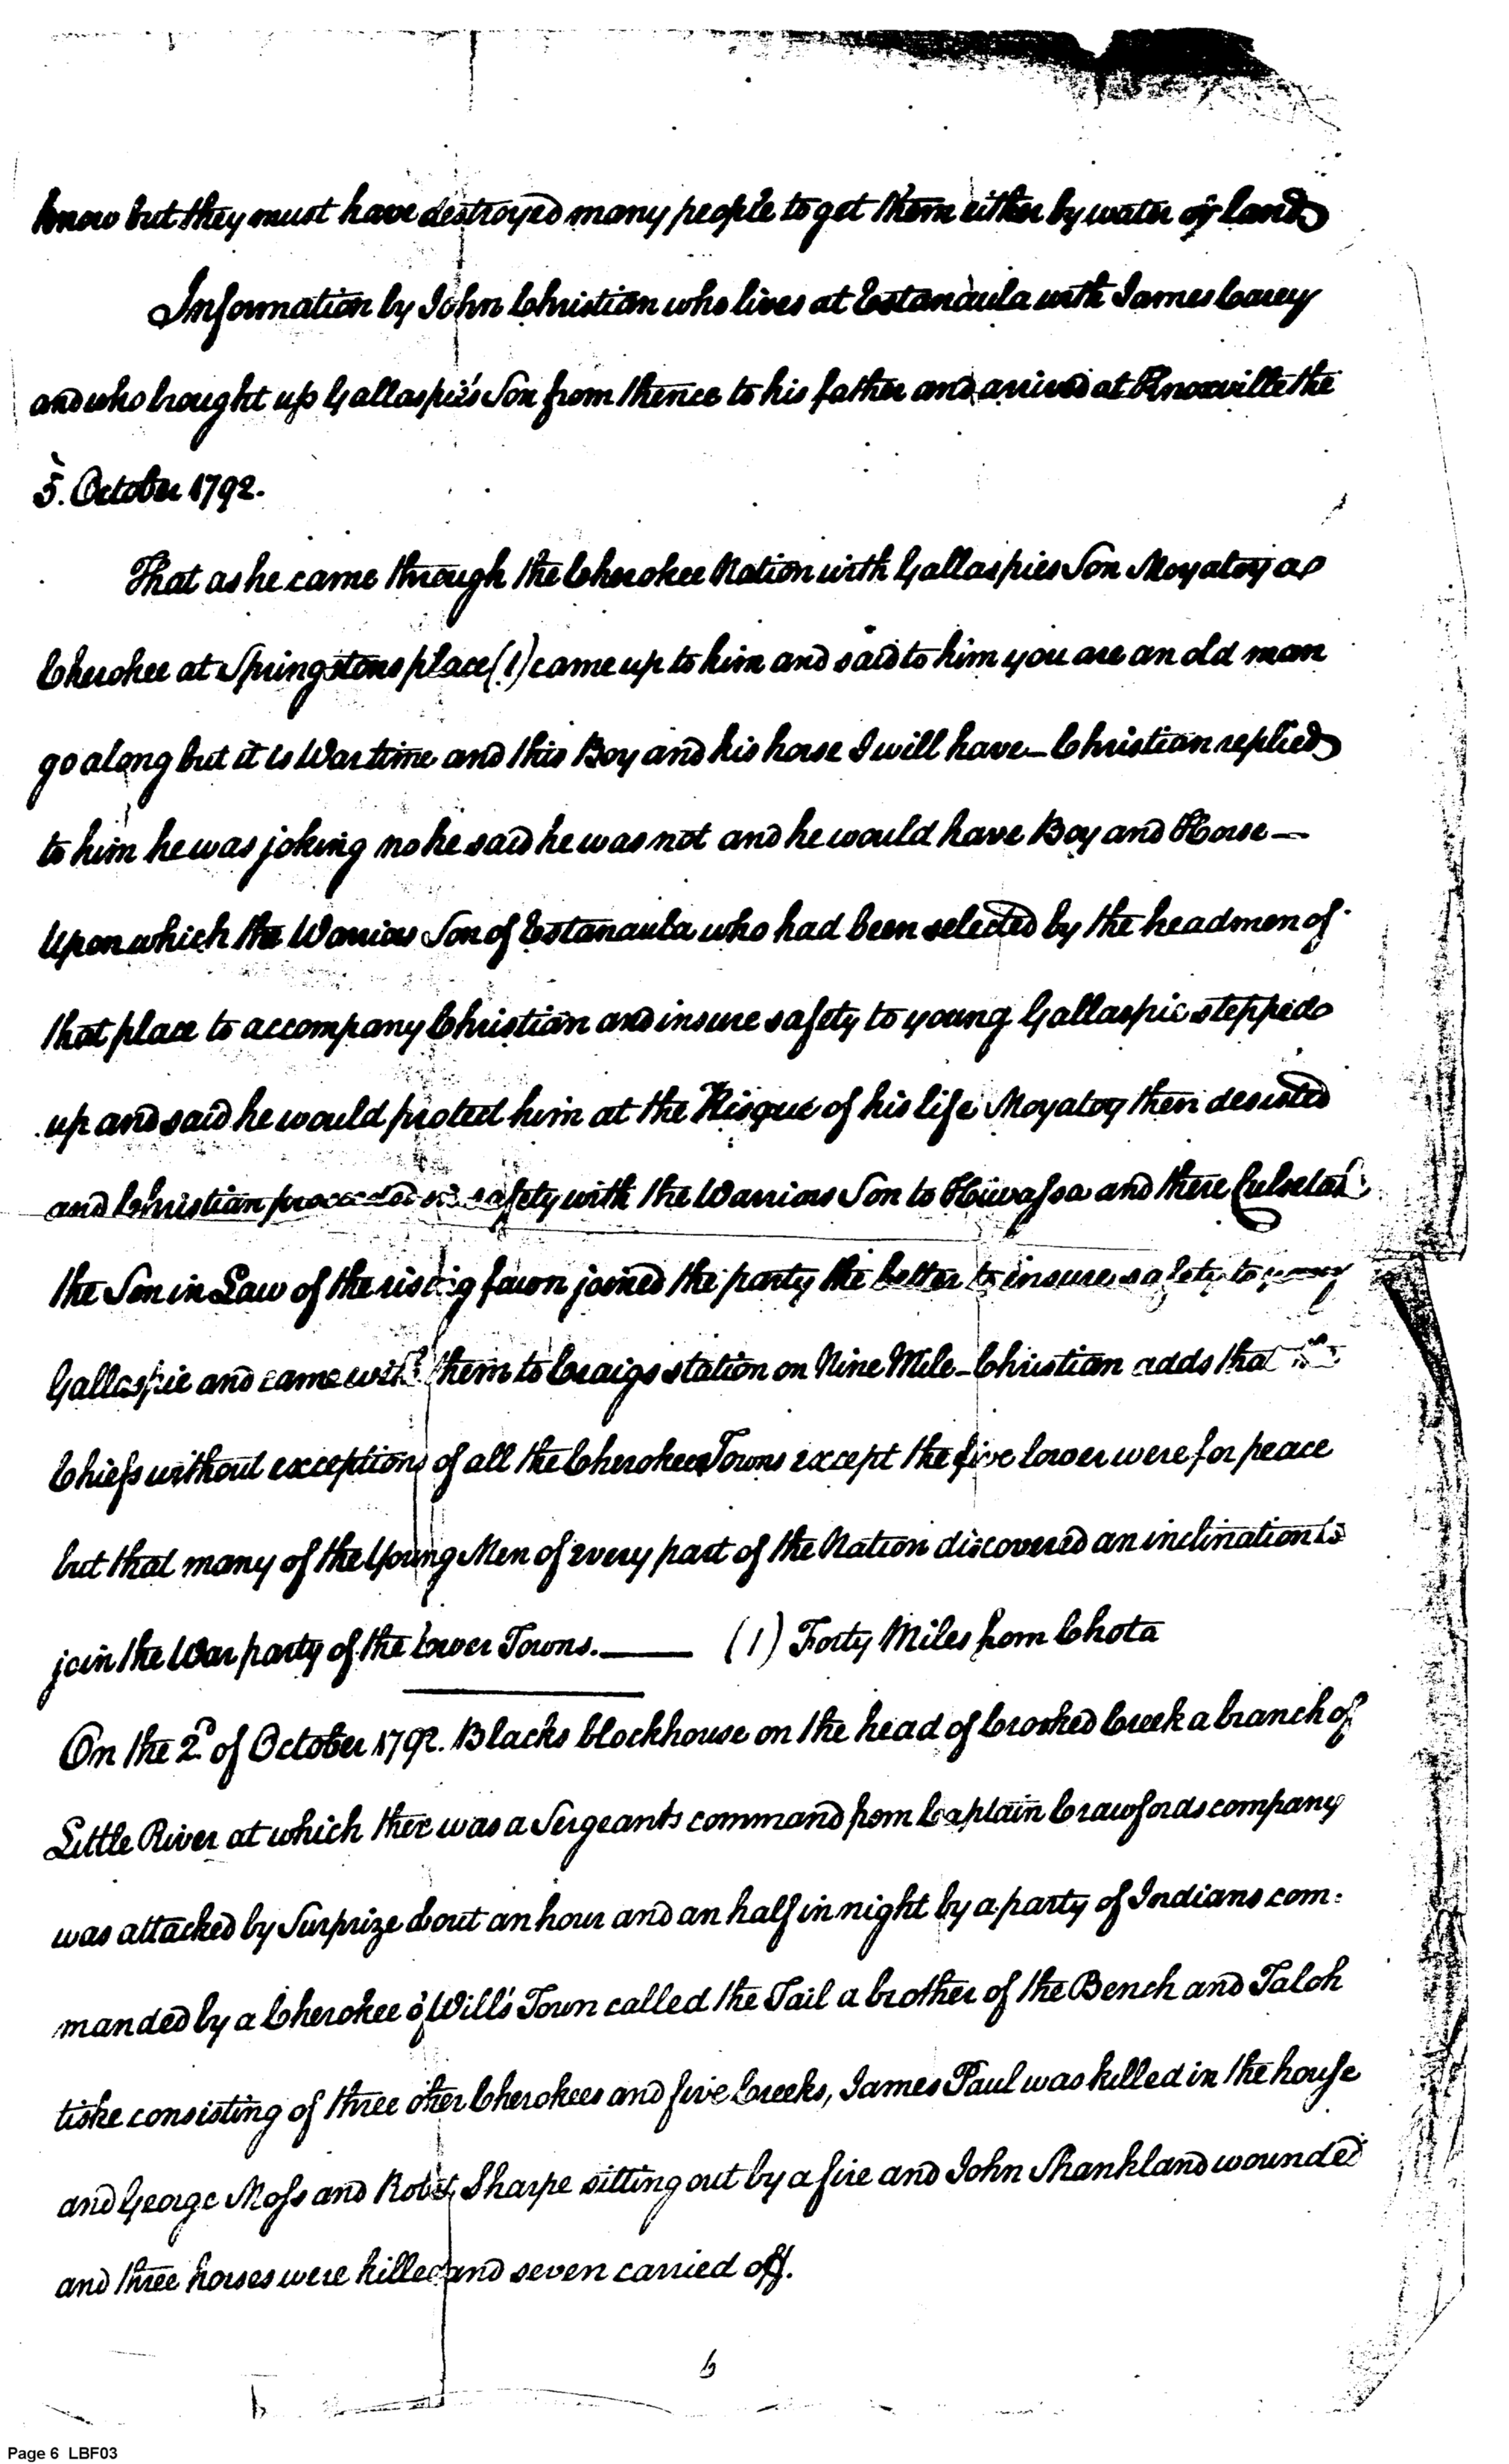 know but they must have destroyed many people to get them either by water or land
Information by John Christian who lives at Estanaula with James Carey
and who brought up Gallaspie's Son from thence to his father and arrived at Knoxville the
5. October 1792.
That as he came through the Cherokee Nation with Gallaspies Son Moyatoy a
Cherokee at Springstons place (1) came up to him and said to him you are an old man
go along but it is War time and this Boy and his horse I will have_ Christian replied
to him he was joking no he said he was not and he would have Boy and Horse —
Upon which the Warriors Son of Estanaula who had been selected by the headmen of
that place to accompany Christian and insure safety to young Gallaspie stepped
up and said he would protect him at the Risque of his life Moyatoy then desisted
and Christian proceeded in safety with the Warriors Son to Hiwassa and there
the Son in Law of the rising fawn joined the party the better to insure safety to young
Gallaspie and came with them to Craigs station on Nine Mile_ Christian adds that the
Chiefs without exceptions of all the Cherokee Towns except the five lower were for peace
but that many of the Young Men of every part of the Nation discovered an inclination to
join the War party of the lower Towns. —— (1) Forty Miles from Chota
On the 2d of October 1792. Blacks blockhouse on the head of Crooked Creek a branch of
Little River at which there was a Sergeants command from Captain Crawfords company
was attacked by Surprize about an hour and an half in night by a party of Indians com:
manded by a Cherokee of Will's Town called the Tail a brother of the Bench and Taloh
tiske consisting of three other Cherokees and five Creeks, James Paul was killed in the house
and George Moss and Robt Sharpe sitting out by a fire and John Shankland wounded
and three horses were killed and seven carried off.
6
Page 6 LBF03